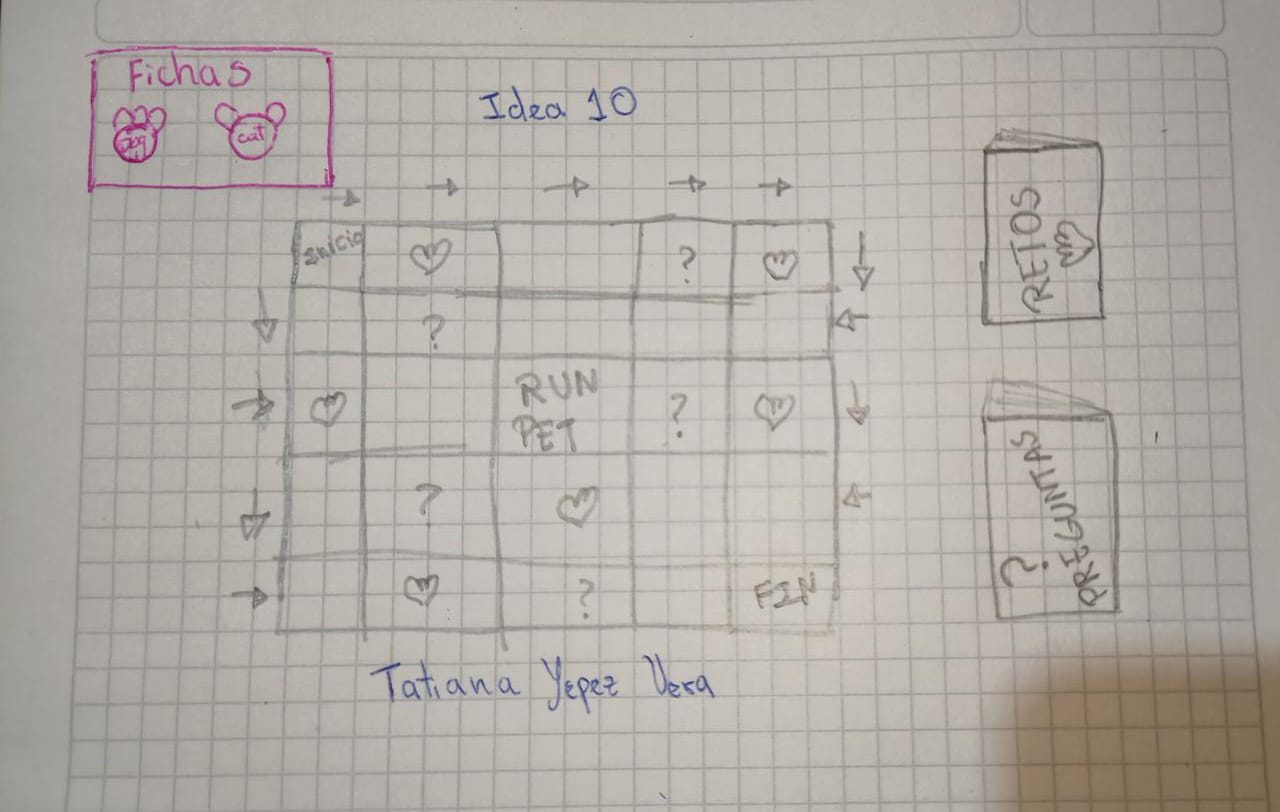 Fichas
Dog cat
Idea 10
Inicio ?
?
RUN
PET ?
?
? FIN
RETOS
PREGUNTAS
?
Tatiana Yepez Vera